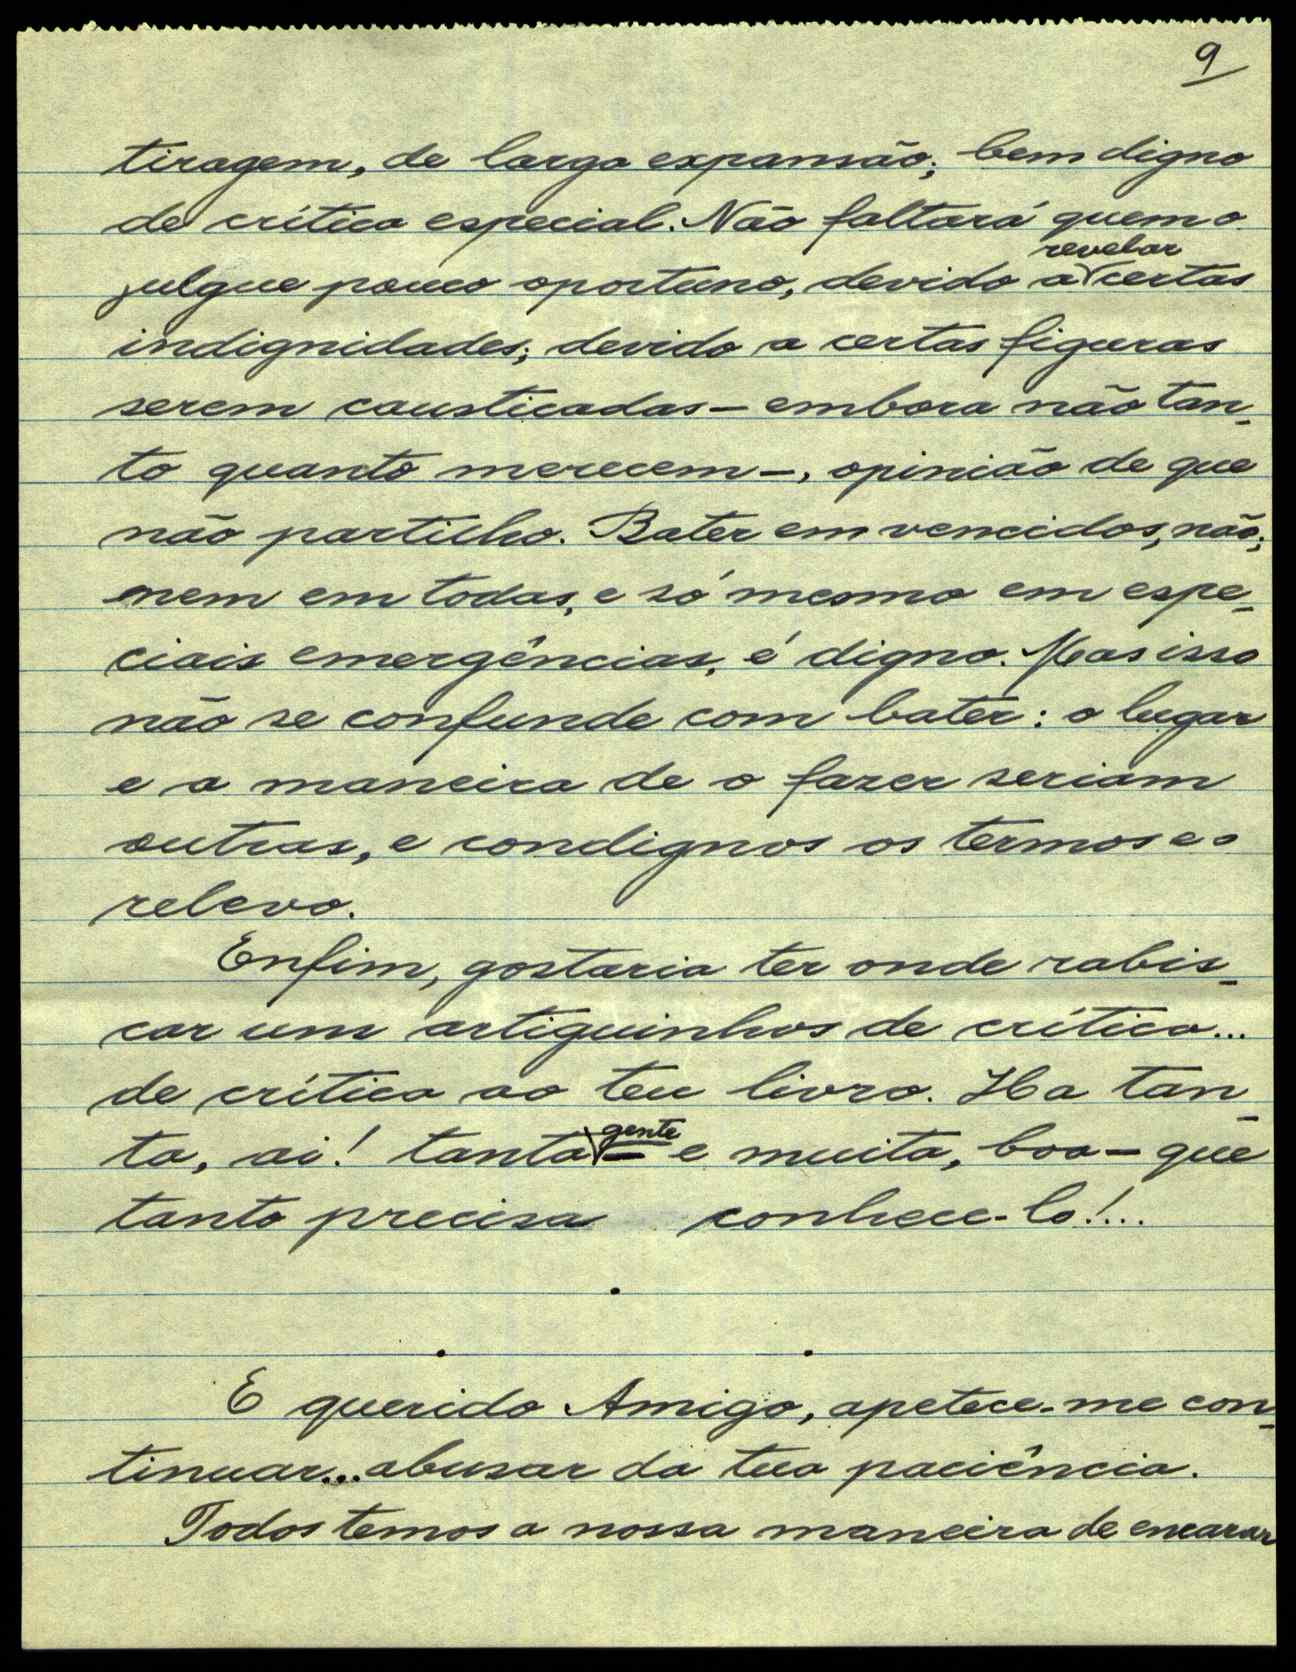 9
tiragem, de larga expansão; bem digno
de crítica especial. Não faltará quem o
revelar
julgue pouco oportuno, devido a certas
indignidades; devido a certas figuras
serem causticadas - embora não tan-
to quanto merecem -, opinião de que
não partilho. Bater em vencidos, não;
nem em todas, e só mesmo em espe-
ciais emergências, é digno. Mas isso
não se confunde com bater: o lugar
e a maneira de o fazer seriam
outras, e condignos os termos e o
relevo.
Enfim, gostaria ter onde rabis-
car um artiguinhos de crítica...
de crítica ao teu livro. Ha tan-
gente
ta, ai! tanta - e muita, boa - que
tanto precisa conhece-lo!...
E querido Amigo, apetece-me con-
tinuar... abusar da tua paciência.
Todos temos a nossa maneira de encarar